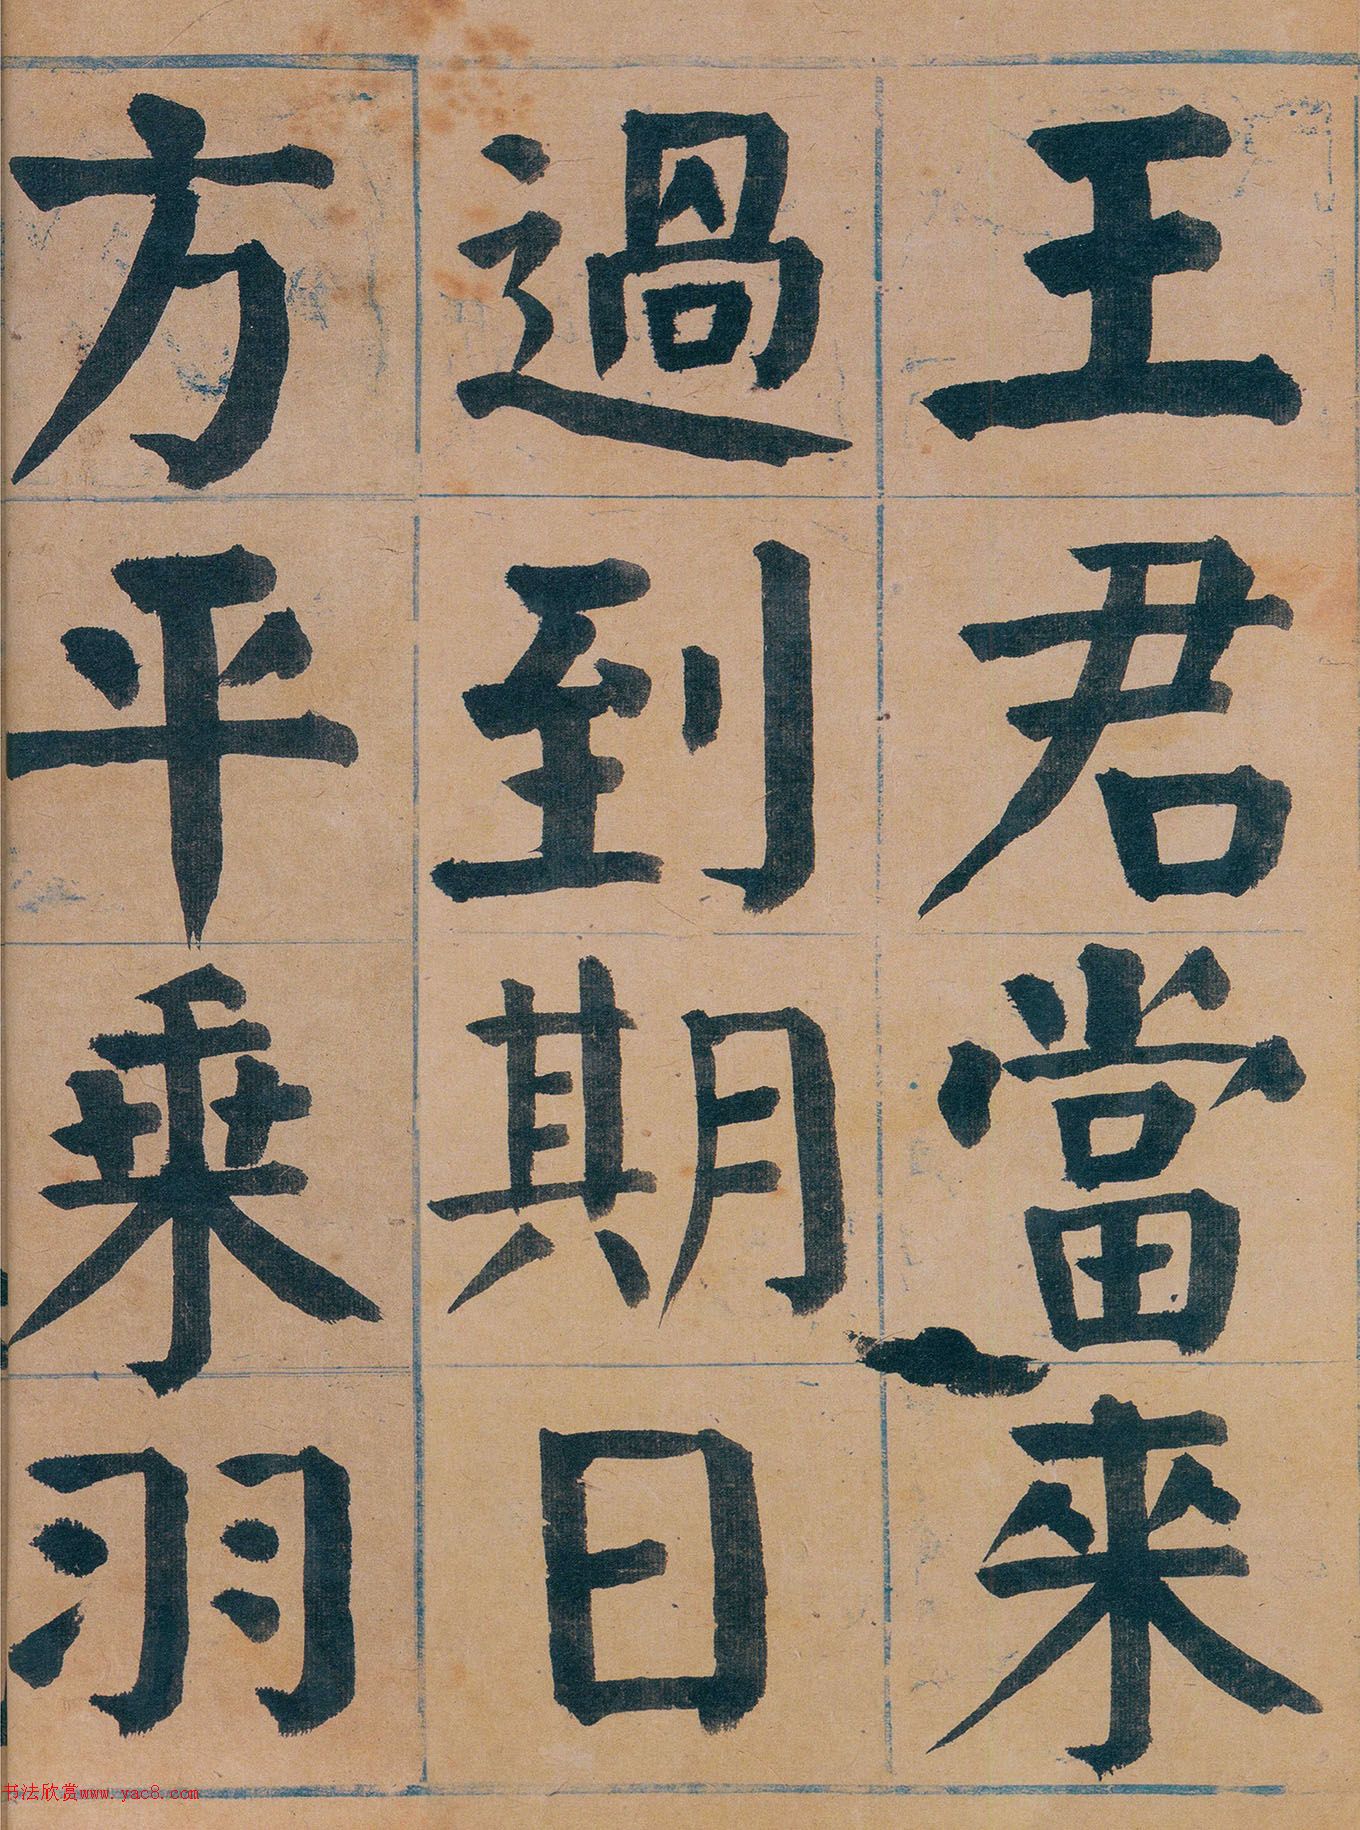 王君當来
過到期日
方平乗羽
书法欣赏www.yac8.com